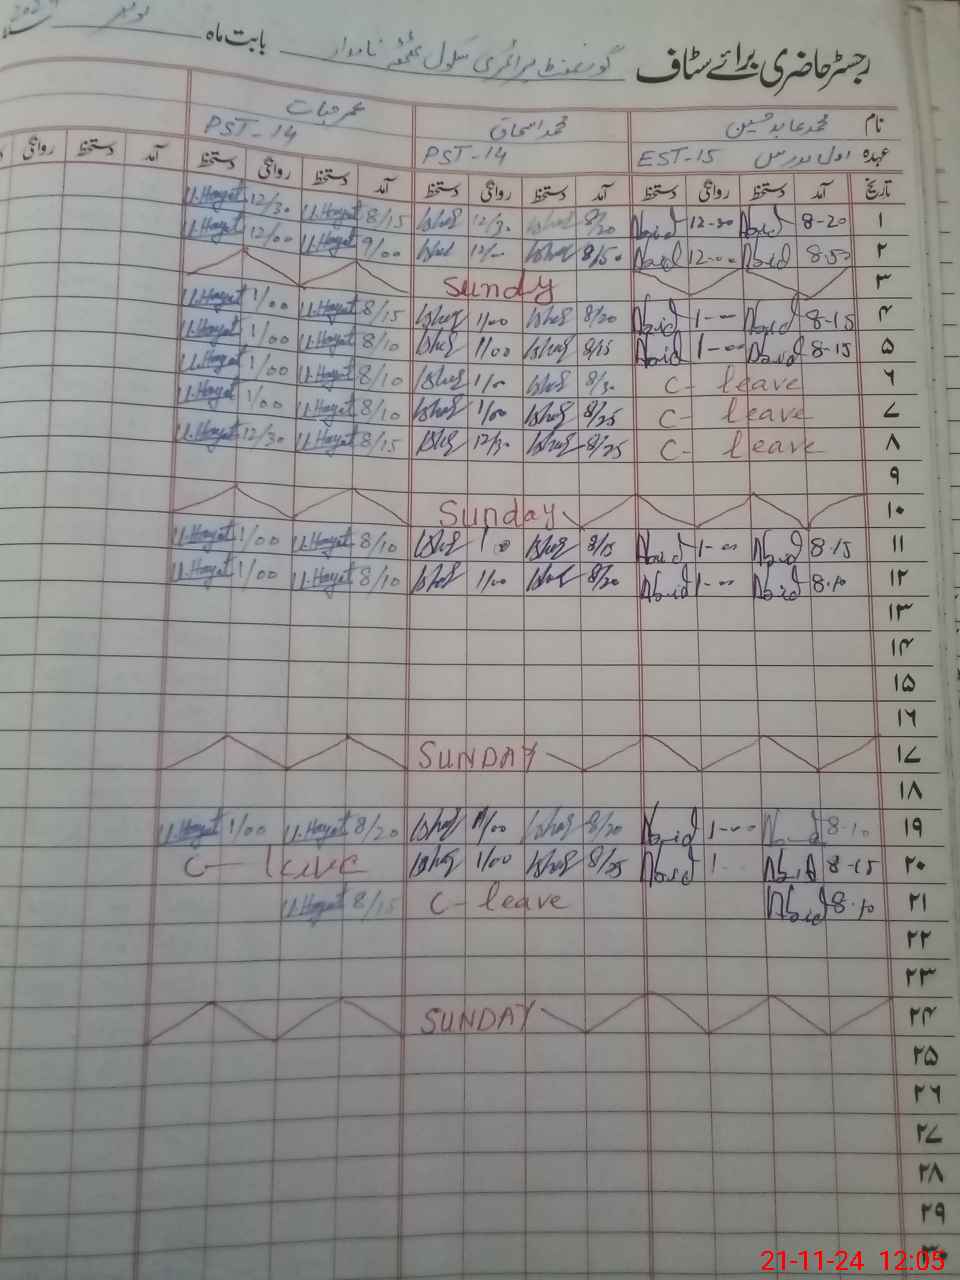 رجسٹر حاضری برائے سٹاف گورنمنٹ پرائمری سکول بابت ماہ نومبر
نام محمد عابد حسین محمد اسحاق عمر حیات
عہدہ اول مدرس EST-15 PST-14 PST-14
تاریخ آمد دستخط روانگی دستخط آمد دستخط روانگی دستخط آمد دستخط روانگی دستخط آمد دستخط روانگی
۱ 8-20 Abid 12-30 Abid 8/20 Ishaq 12/30 Ishaq 8/15 U.Hayat 12/30 U.Hayat
۲ 8.50 Abid 12-00 Abid 8/50 Ishaq 12/00 Ishaq 9/00 U.Hayat 12/00 U.Hayat
۳ Sunday
۴ 8-15 Abid 1-00 Abid 8/20 Ishaq 1/00 Ishaq 8/15 U.Hayat 1/00 U.Hayat
۵ 8-15 Abid 1-00 Abid 8/15 Ishaq 1/00 Ishaq 8/10 U.Hayat 1/00 U.Hayat
۶ C- leave 8/30 Ishaq 1/00 Ishaq 8/10 U.Hayat 1/00 U.Hayat
۷ C- leave 8/25 Ishaq 1/00 Ishaq 8/10 U.Hayat 1/00 U.Hayat
۸ C- leave 8/25 Ishaq 12/30 Ishaq 8/15 U.Hayat 12/30 U.Hayat
۹
۱۰ Sunday
۱۱ 8.15 Abid 1-00 Abid 8/15 Ishaq 1/00 Ishaq 8/10 U.Hayat 1/00 U.Hayat
۱۲ 8.10 Abid 1-00 Abid 8/20 Ishaq 1/00 Ishaq 8/10 U.Hayat 1/00 U.Hayat
۱۳
۱۴
۱۵
۱۶
۱۷ SUNDAY
۱۸
۱۹ 8-10 Abid 1-00 Abid 8/20 Ishaq 1/00 Ishaq 8/20 U.Hayat 1/00 U.Hayat
۲۰ 8-15 Abid 1 Abid 8/25 Ishaq 1/00 Ishaq C- leave
۲۱ 8.10 Abid C- leave 8/15 U.Hayat
۲۲
۲۳
۲۴ SUNDAY
۲۵
۲۶
۲۷
۲۸
۲۹
۳۰
21-11-24 12:05